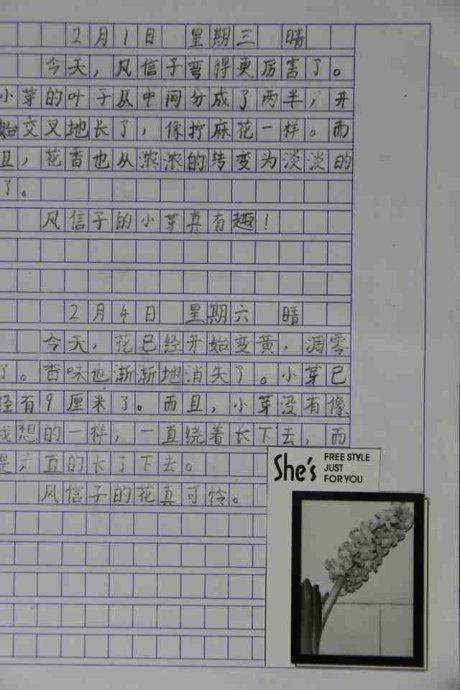 2月1日 星期三 晴
今天，风信子弯得更厉害了。
小芽的叶子从中间分成了两半，开
始交叉地长了，像拧麻花一样。而
且，花香也从浓浓的转变为淡淡的
了。
风信子的小芽真有趣！
2月4日 星期六 晴
今天，花已经开始变黄，凋零
了。香味也渐渐地消失了。小芽已
经有9厘米了。而且，小芽没有像
我想的一样，一直绕着长下去，而
是 直的长了下去。
风信子的花真可怜。
She's FREE STYLE
JUST
FOR YOU